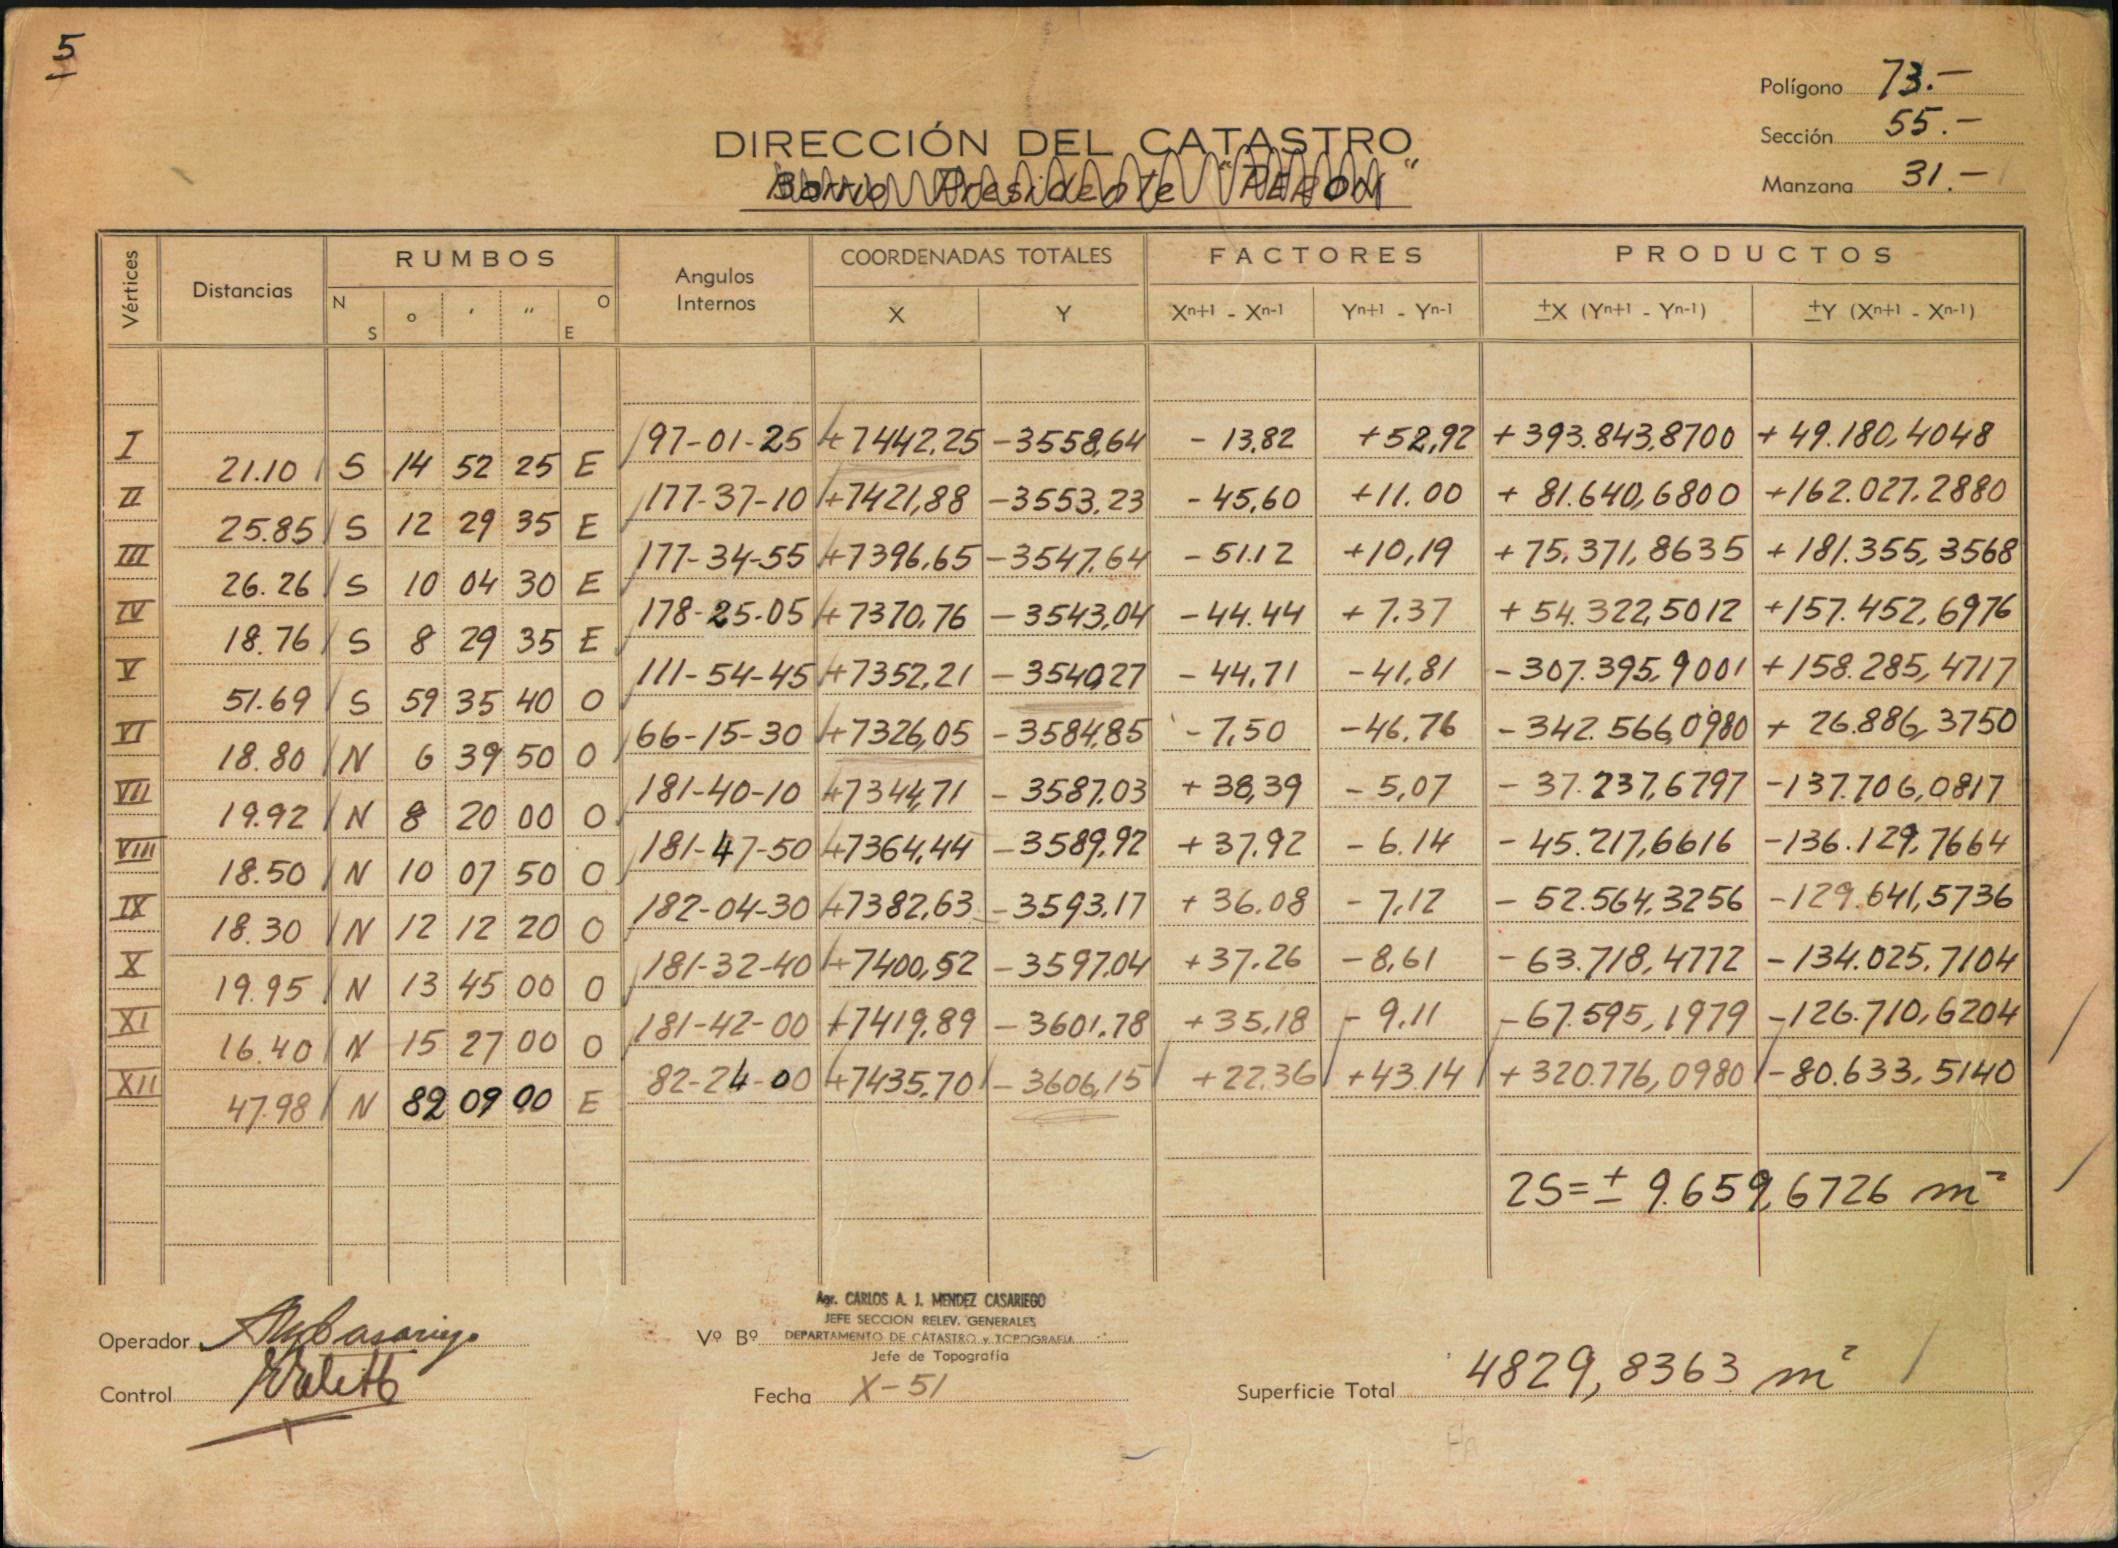 5
Polígono 73.-
Sección 55.-
Manzana 31.-
DIRECCIÓN DEL CATASTRO
Barrio Presidente "PERON"
Vértices Distancias RUMBOS Angulos Internos COORDENADAS TOTALES FACTORES PRODUCTOS
N S o ' " O E X Y Xn+1 - Xn-1 Yn+1 - Yn-1 ±X (Yn+1 - Yn-1) ±Y (Xn+1 - Xn-1)
I 97-01-25 +7442,25 -3558,64 -13,82 +52,92 +393.843,8700 +49.180,4048
21.10 S 14 52 25 E
II 177-37-10 +7421,88 -3553,23 -45,60 +11.00 +81.640,6800 +162.027,2880
25.85 S 12 29 35 E
III 177-34-55 +7396,65 -3547,64 -51.12 +10,19 +75.371,8635 +181.355,3568
26.26 S 10 04 30 E
IV 178-25-05 +7370,76 -3543,04 -44.44 +7.37 +54.322,5012 +157.452,6976
18.76 S 8 29 35 E
V 111-54-45 +7352,21 -3540,27 -44,71 -41,81 -307.395,9001 +158.285,4717
51.69 S 59 35 40 O
VI 66-15-30 +7326,05 -3584,85 -7,50 -46,76 -342.566,0980 +26.886,3750
18.80 N 6 39 50 O
VII 181-40-10 +7344,71 -3587,03 +38,39 -5,07 -37.237,6797 -137.706,0817
19.92 N 8 20 00 O
VIII 181-47-50 +7364,44 -3589,92 +37,92 -6.14 -45.217,6616 -136.129,7664
18.50 N 10 07 50 O
IX 182-04-30 +7382,63 -3593,17 +36.08 -7,12 -52.564,3256 -129.641,5736
18.30 N 12 12 20 O
X 181-32-40 +7400,52 -3597,04 +37.26 -8,61 -63.718,4772 -134.025,7104
19.95 N 13 45 00 O
XI 181-42-00 +7419,89 -3601,78 +35,18 -9,11 -67.595,1979 -126.710,6204
16.40 N 15 27 00 O
XII 82-24-00 +7435,70 -3606,15 +22.36 +43.14 +320.776,0980 -80.633,5140
47.98 N 82 09 00 E
2S=± 9.659,6726 m²
Agr. CARLOS A. J. MENDEZ CASARIEGO
JEFE SECCION RELEV. GENERALES
Operador Vº Bº DEPARTAMENTO DE CATASTRO y TOPOGRAFIA
Jefe de Topografía
Control Fecha X-51 Superficie Total 4829,8363 m²